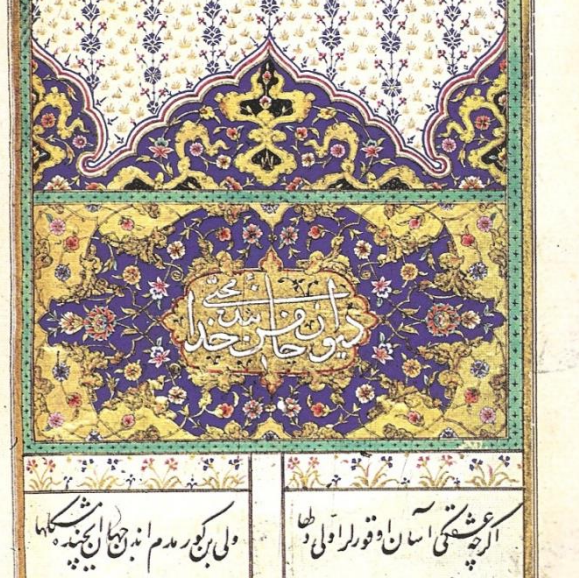 دیوان بنده خدا
اگرچه عشقکی آسان اوقورلر اولی دلها
ولی بن کورمدم اندن جهان ایچنده مشکلها